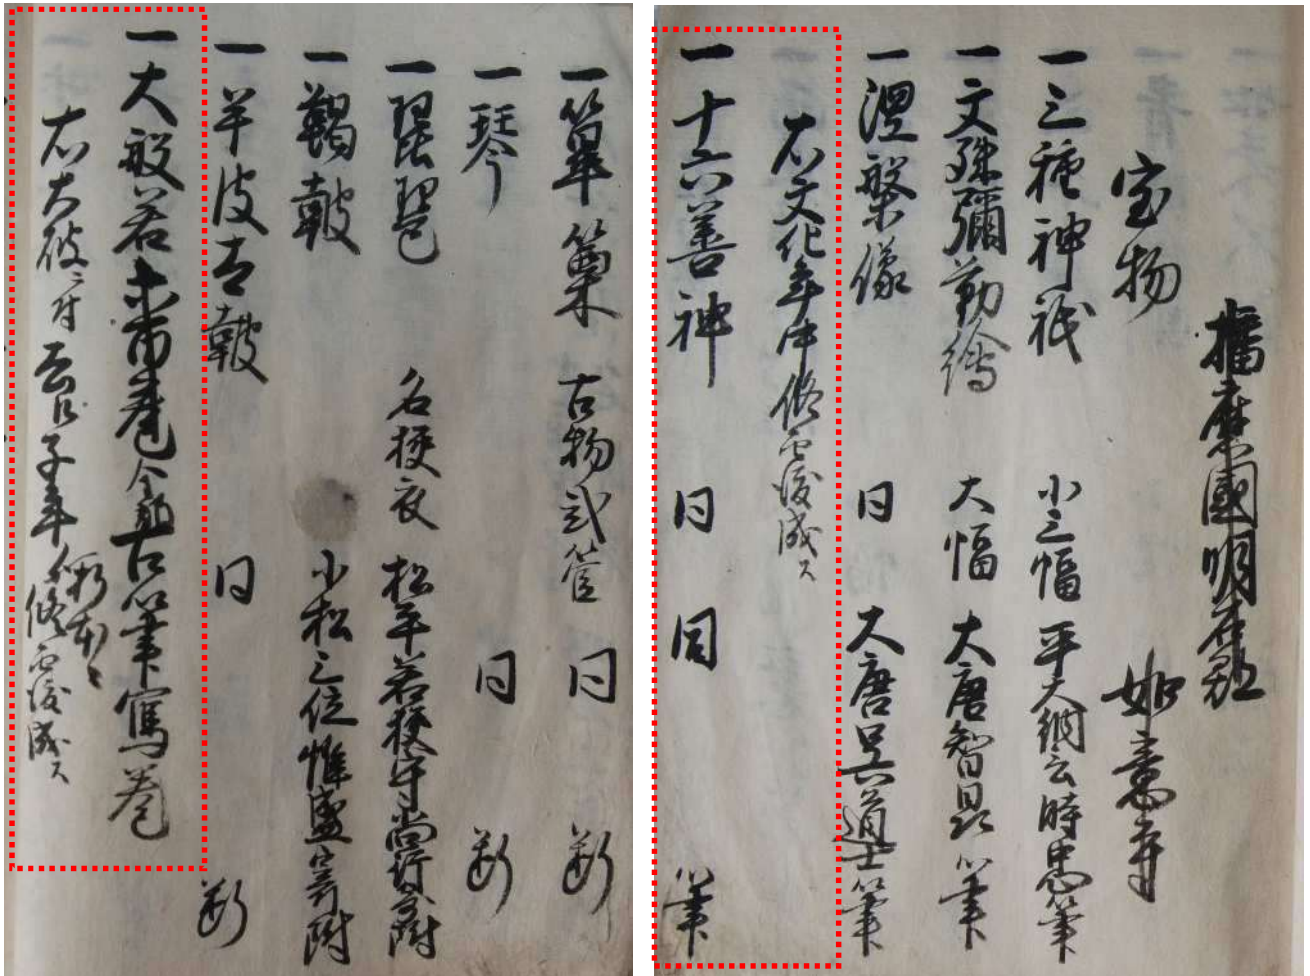 播磨國明石郡
宝物　如意寺
一三種神祇　小三幅　平大納言時忠筆
一文殊彌勒繪　大幅　大唐智昆筆
一涅槃像　同　大唐呉道士筆
右文化年中修覆成ス
一十六善神　同　同　筆
一篳篥　古物弐管　同　断
一琴　同　断
一琵琶　名梗夜　松平若狭守尚行寄附
一鞨鼓　小松三位惟盛寄附
一羊皮古鼓　同　断
一大般若　古筆寫巻
右大破ニ付　子年　修覆成ス